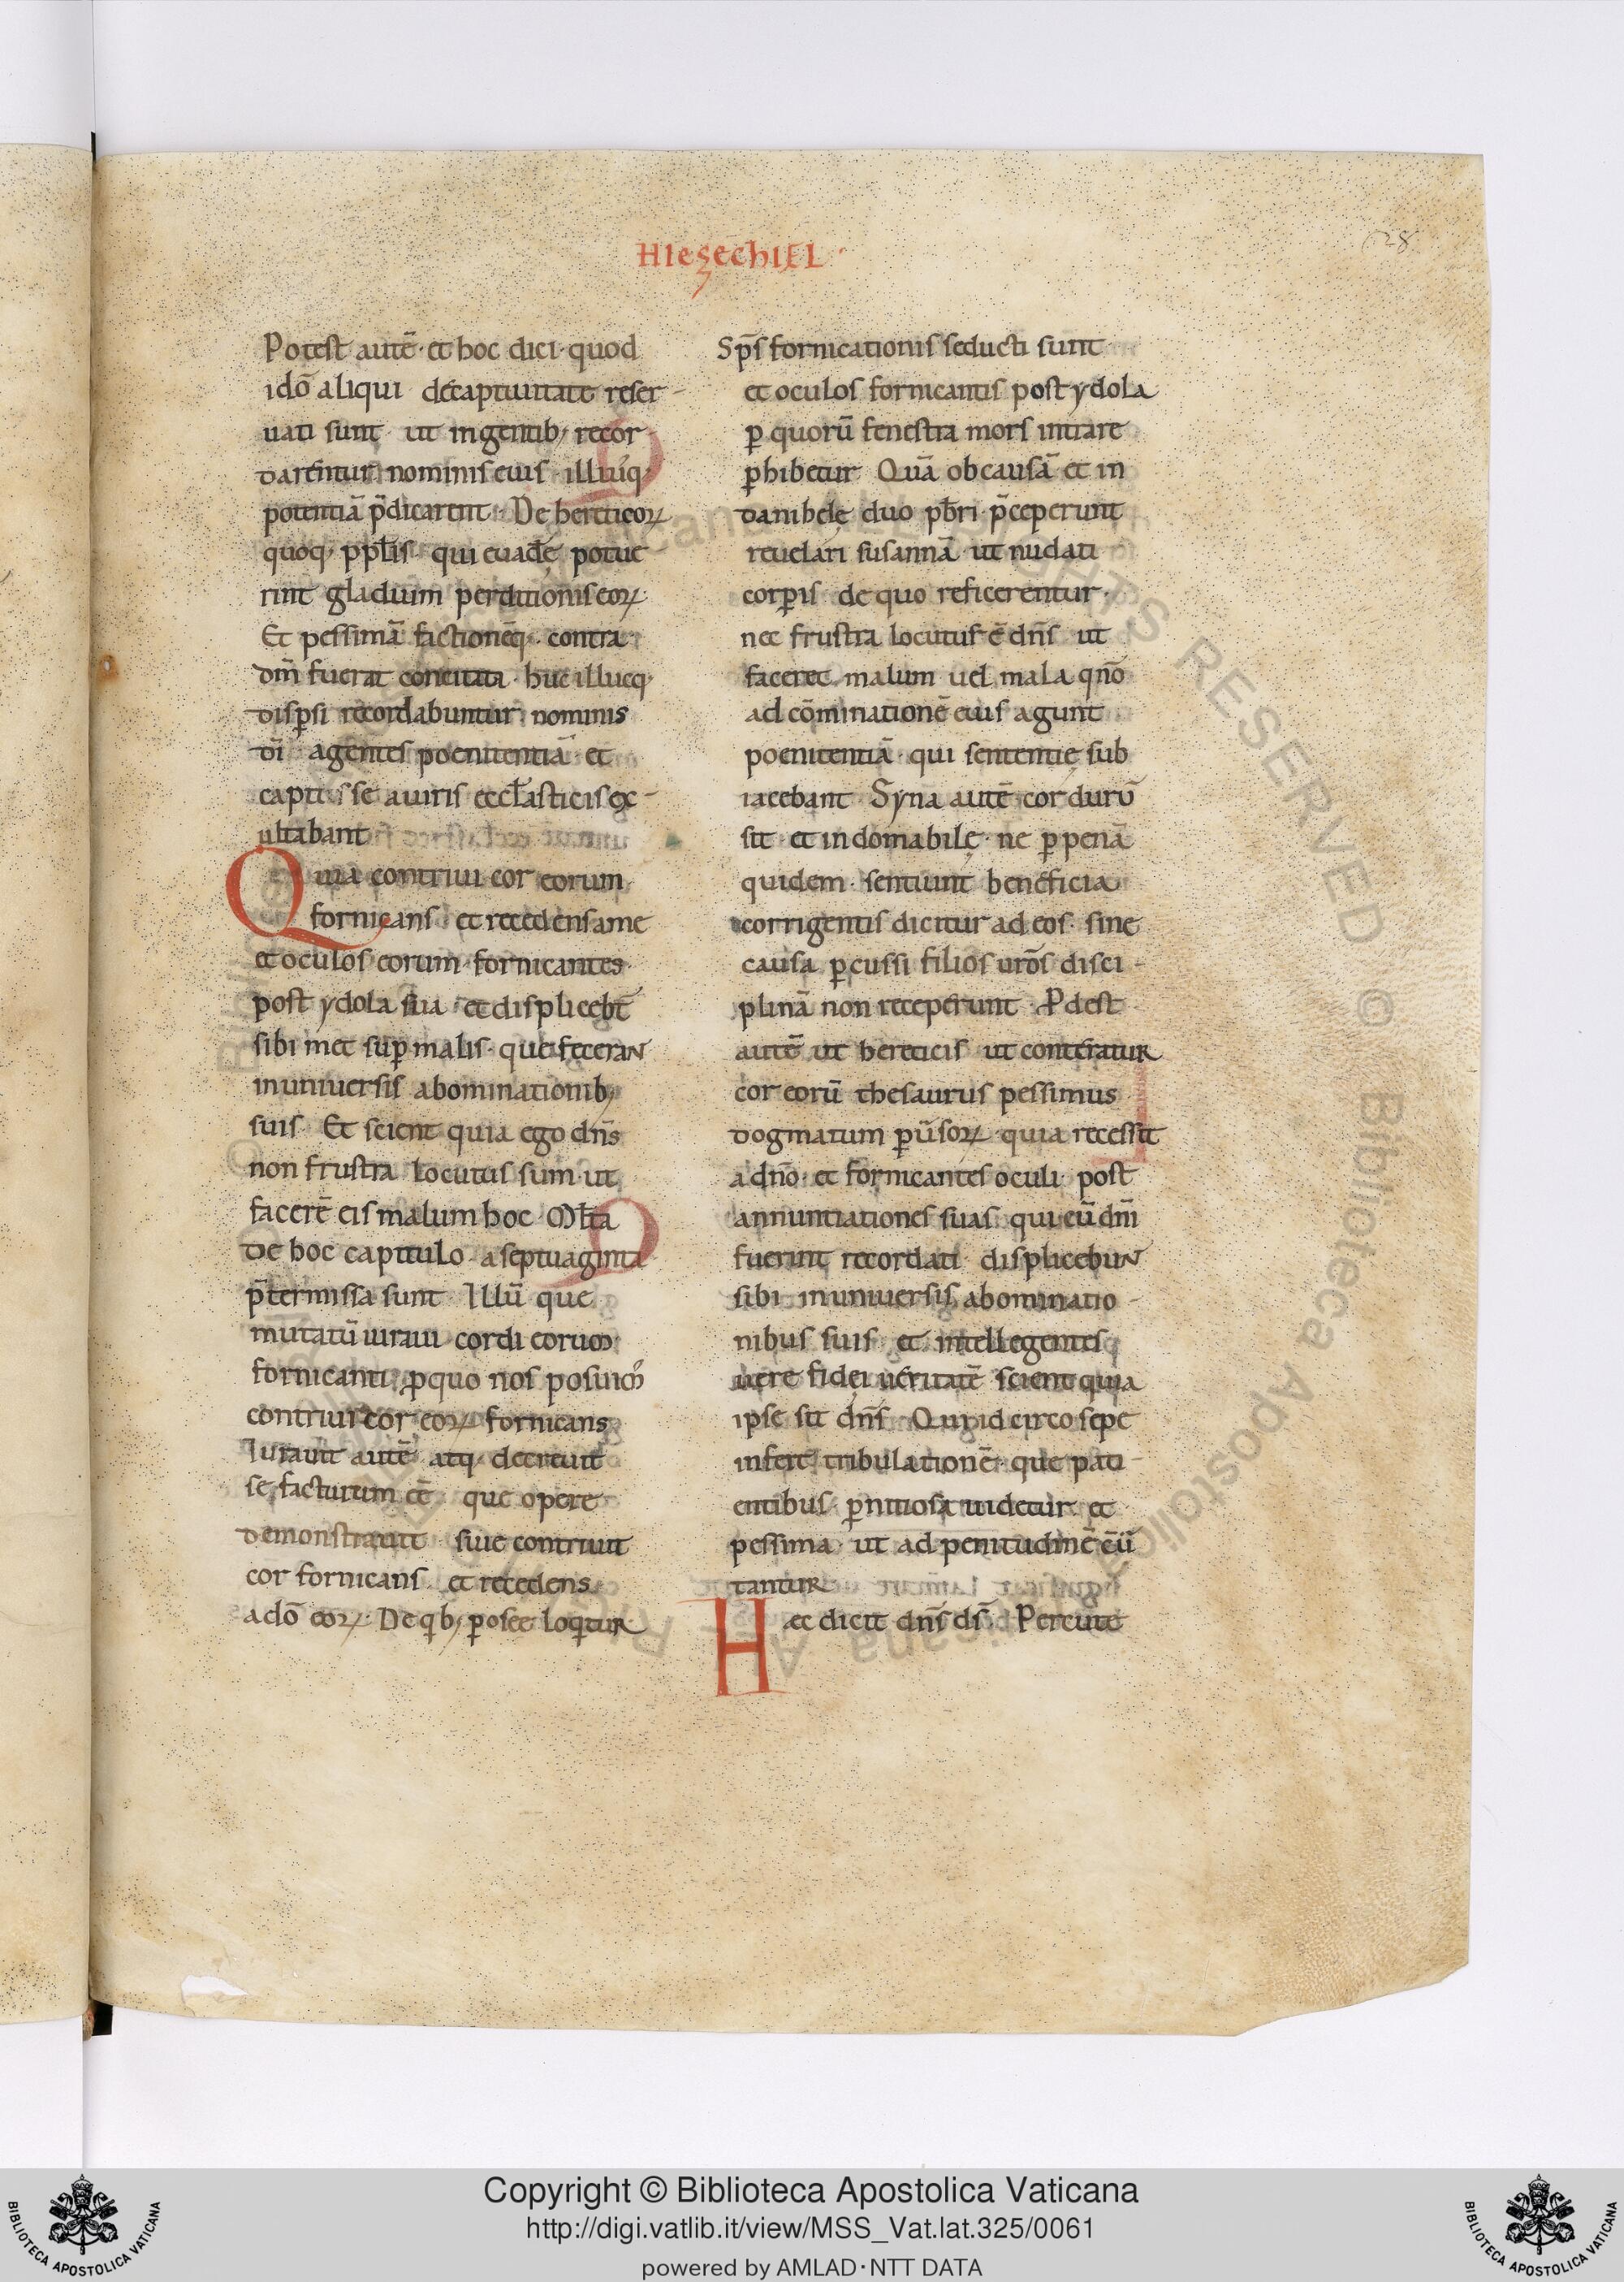 HIEzECHIEL ·
28
Potest autē · et hoc dici · quod
idō aliqui decaptiuitate reser-
uati sunt ut ingentib; recor-
darentur nominis eius · illiusq;
potentiā p̄dicarent · De hereticoꝝ
quoq; ppl̄is qui euadẽ potue-
rint gladium perditionis eoꝝ
Et pessimā factionēq; contra
dm̄ fuerat concitata · huc illucq;
disꝑsi recordabuntur nominis
dī agentes poenitentiā et
captus se auiris eccl̄asticis ex-
ultabant
Quia contriui cor eorum
fornicans et recedens ame
et oculos eorum fornicantes
post ydola sua et displicebt̄
sibi met suꝑ malis · que feceraN
inuniuersis abominationib;
suis Et scient quia ego dn̄s
non frustra locutus sum ut
facerē eis malum hoc Ml̄ta
de hoc capitulo aseptuaginta
p̄termissa sunt Illū que
mutatū iuraui cordi eorum
fornicanti ꝑquo nos posuim᾽
contriui cor eoꝝ fornicans
Iurauit autē atq; decreuit
se facturum eē que opere
demonstrauit siue contriuit
cor fornicans et recedens
adō eoꝝ · De qb; ꝑosee loqtuR
Sp̄s fornicationis seducti sunt
et oculos fornicantis post ydola
ꝑ quorū fenestra mors intrare
ꝑhibetur Quā obcausā et in
danihele duo pb̄ri p̄ceperunt
reuelari susannā ut nudati
corꝑis de quo reficerentur ·
nec frustra locutus ē dn̄s ut
faceret malum uel mala qn̄o
ad cōminationē eius agunt
poenitentiā · qui sententię sub
iacebant Syna autē cor durū
sit et indomabilę · ne ꝑ penā
quidem sentiunt beneficia
corrigentis dicitur ad eos · sine
causa ꝑcussi filios ur̄os disci-
plinā non receperunt · Pdest
autē ut hereticis ut conteratuR
cor eorū thesaurus pessimus
dogmatum ꝑū̄soꝝ · quia recessit
adn̄o · et fornicantes oculi post
annuntiationes suas qui eū dn̄i
fuerint recordati displicebuN
sibi inuniuersis abominatio-
nibus suis et intellegentes
uere fidei ueritatē scient quia
ipse sit dn̄s Qui idcirco sepe
infert tribulationē que pati-
entibus ꝑnitiosa uidetur et
pessima ut ad penitudinē eū̄
tantuR
Hæc dicit dn̄s ds̄ Percute
Copyright © Biblioteca Apostolica Vaticana
http://digi.vatlib.it/view/MSS_Vat.lat.325/0061
powered by AMLAD·NTT DATA
BIBLIOTECA APOSTOLICA VATICANA
BIBLIOTECA APOSTOLICA VATICANA